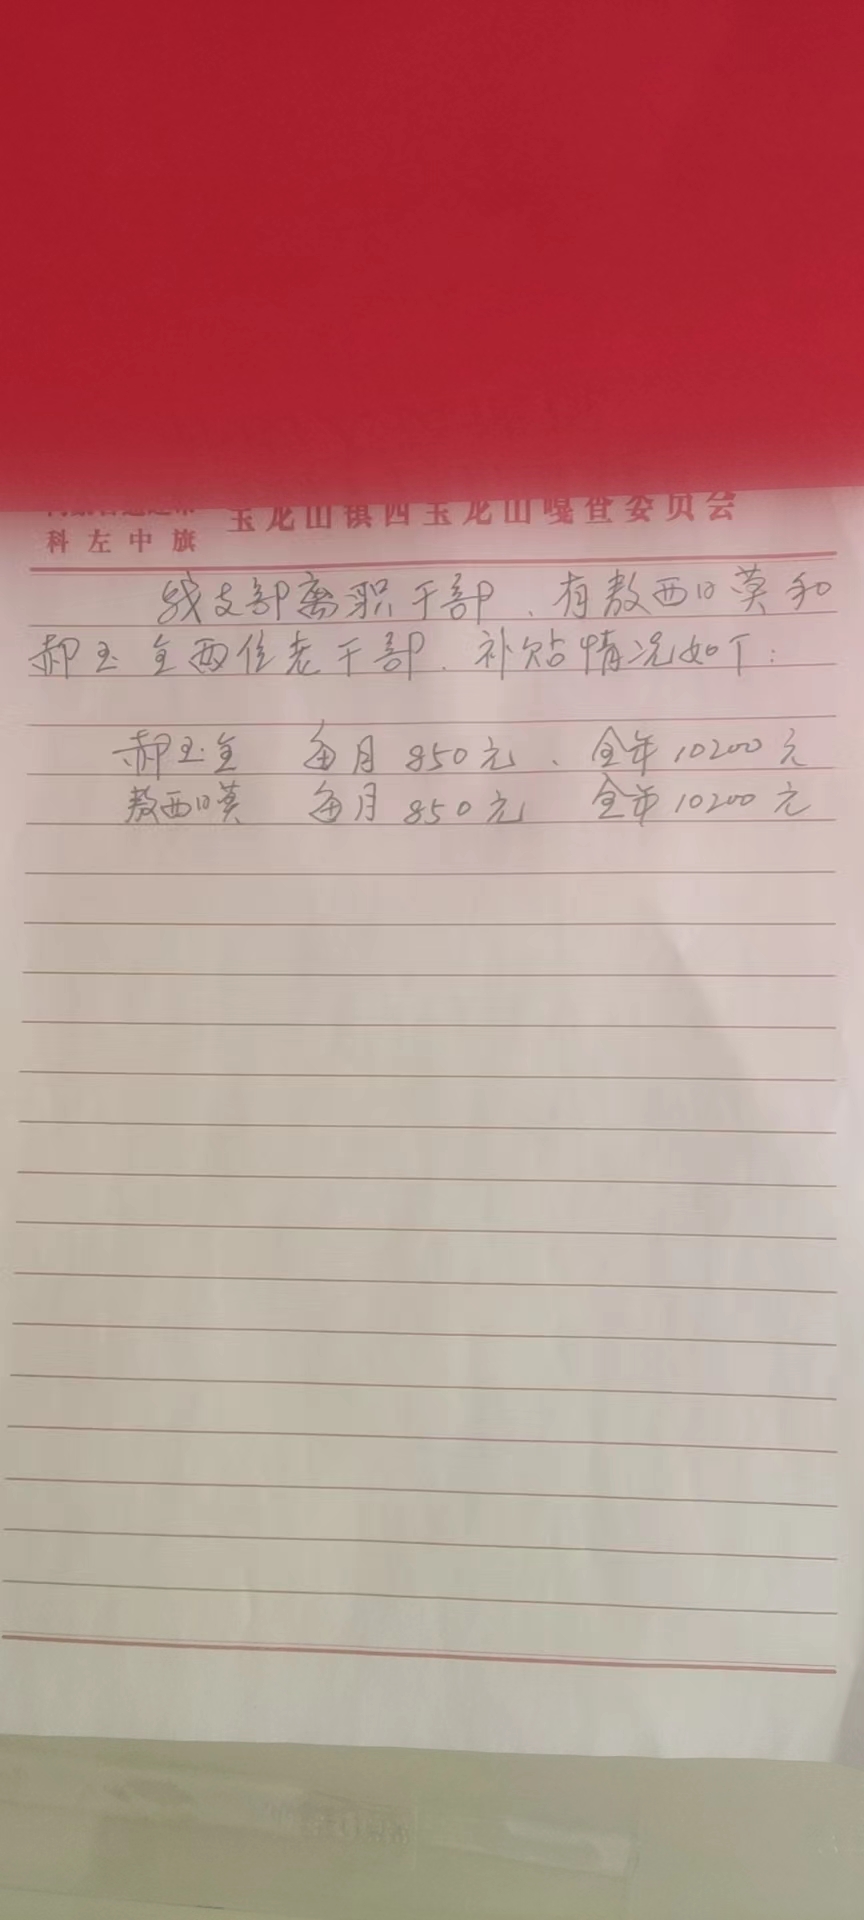 科左中旗 宝龙山镇西宝龙山嘎查委员会
我支部离职干部、有敖西日莫和
郝玉全两位老干部. 补贴情况如下:
郝玉全 每月850元、全年10200元
敖西日莫 每月850元 全年10200元